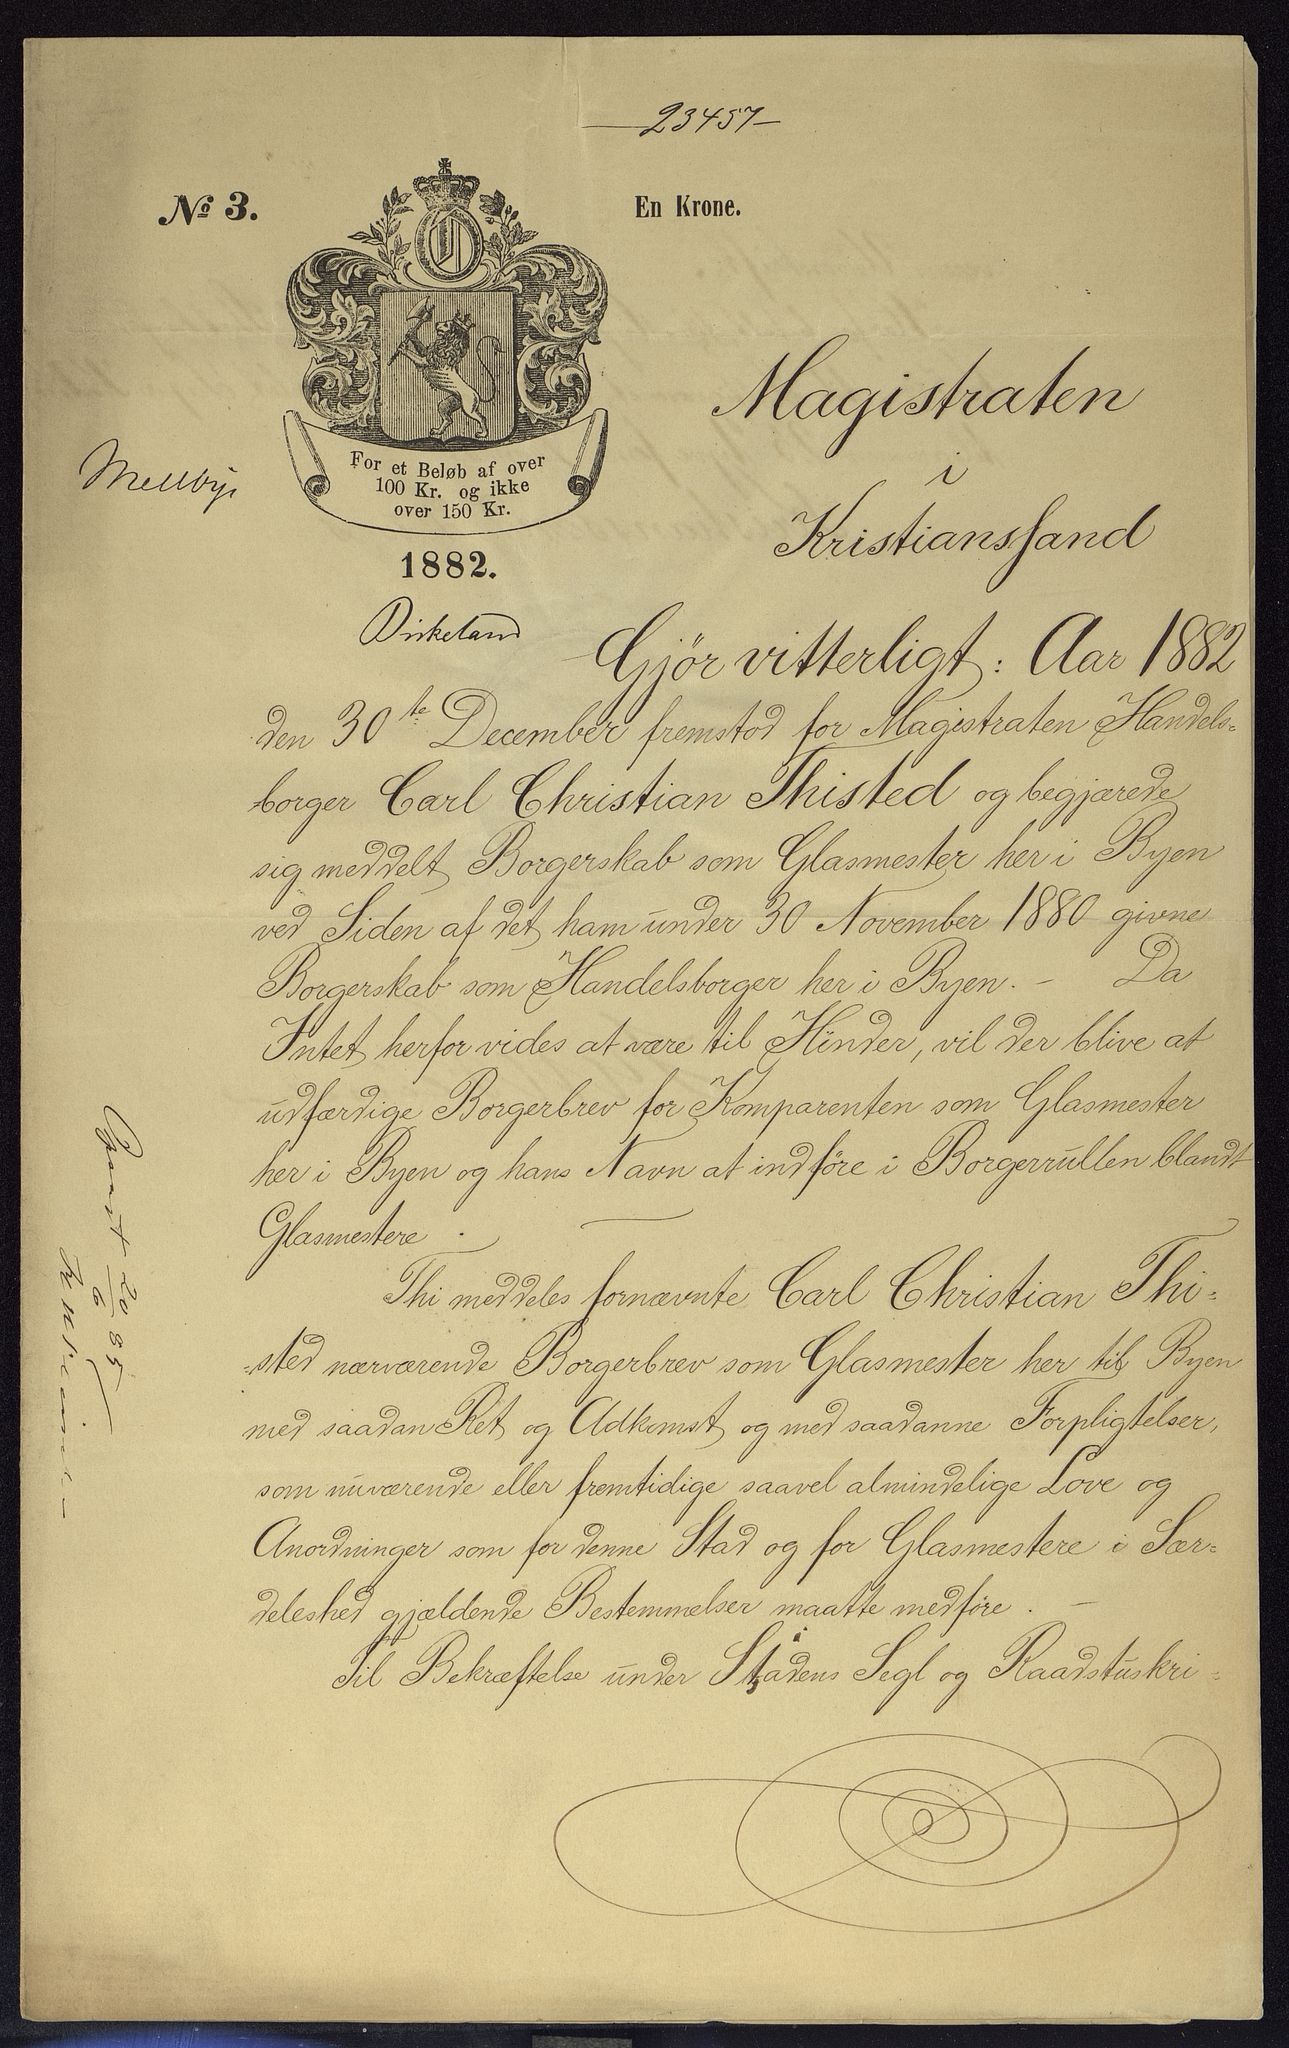 23457
No 3.
En Krone.
For et Beløb af over
100 Kr. og ikke
over 150 Kr.
1882.
Mellbye
Birkeland
Magistraten
i
Kristianssand
Gjör vitterligt: Aar 1882
den 30te December fremstod for Magistraten Handels-
borger Carl Christian Thisted og begjærede
sig meddelt Borgerskab som Glasmester her i Byen
ved Siden af det ham under 30 November 1880 givne
Borgerskab som Handelsborger her i Byen. – Da
Intet herfor vides at være til Hinder, vil der blive at
udfærdige Borgerbrev for Komparenten som Glasmester
her i Byen og hans Navn at indföre i Borgerrullen blandt
Glasmestere.
Thi meddeles fornævnte Carl Christian Thi-
-sted nærværende Borgerbrev som Glasmester her til Byen
med saadan Ret og Adkomst og med saadanne Forpligtelser,
som nuværende eller fremtidige saavel almindelige Love og
Anordninger som for denne Stad og for Glasmestere i Sær-
deleshed gjældende Bestemmelser maatte medföre. –
Til Bekræftelse under Stadens Segl og Raadstuskri-
20/6 85